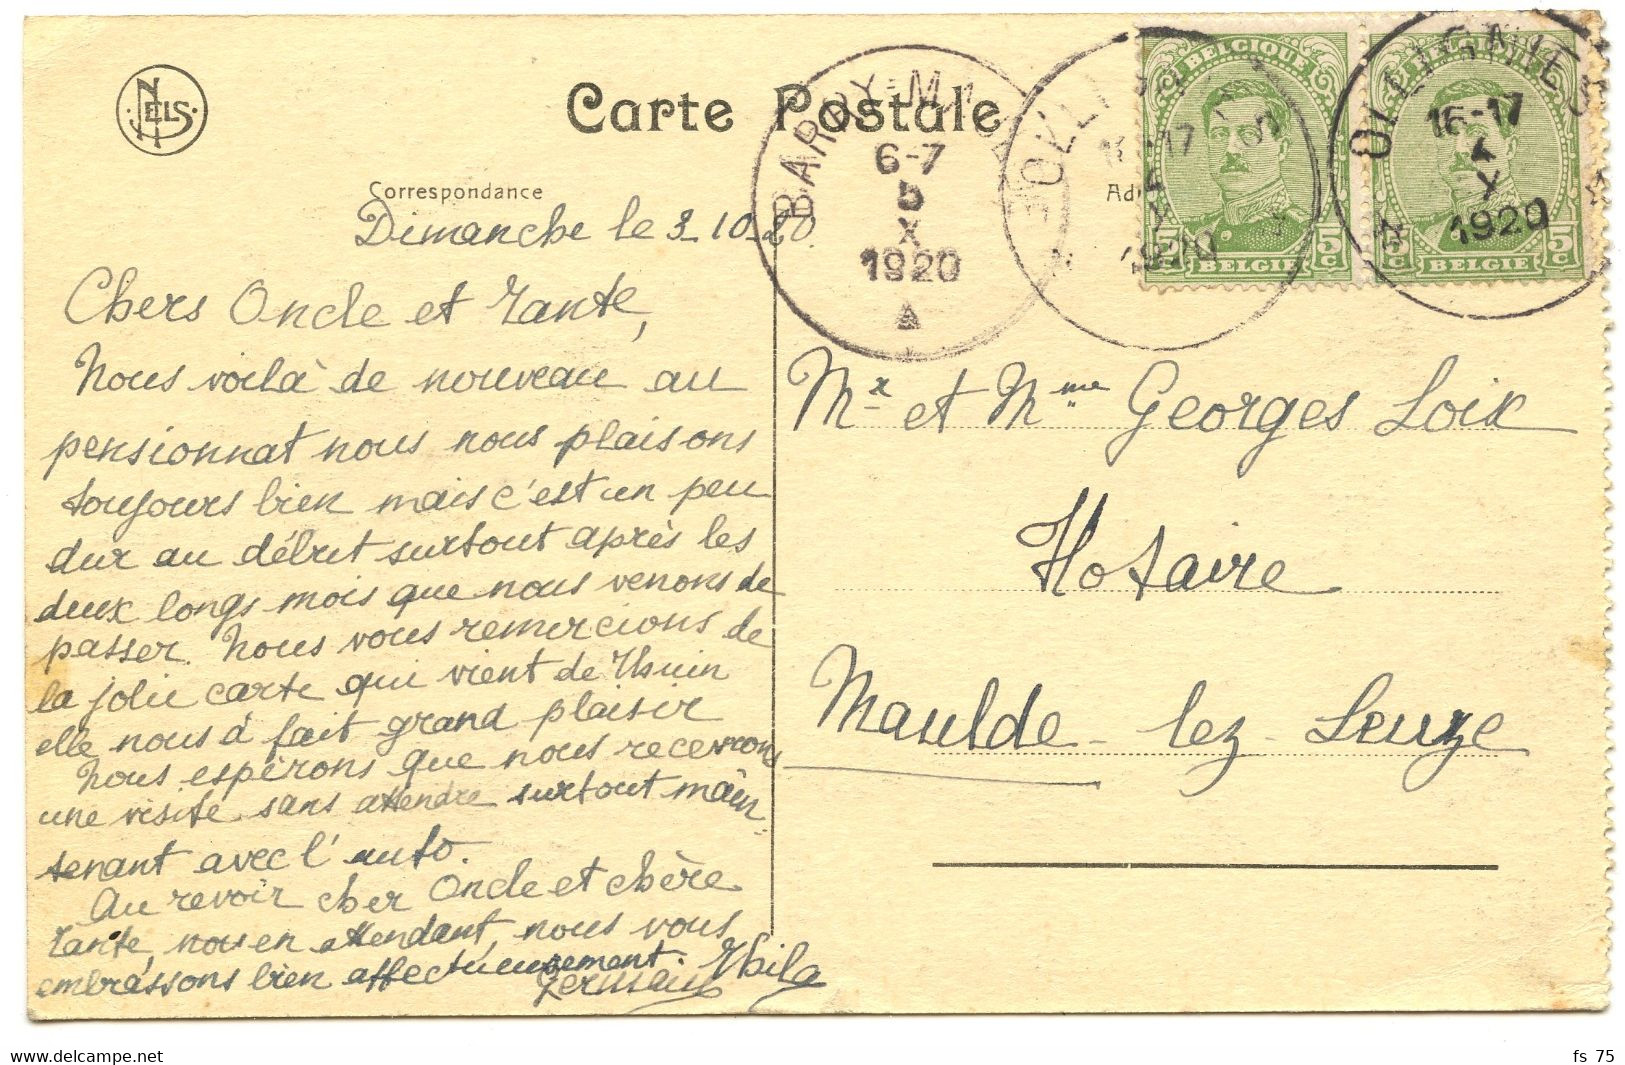 NELS
Carte Postale
Correspondance
BARRY-M
6-7
5
X
1920
OLLIGNIES
16-17
4
X
1920
BELGIQUE
5c
BELGIE
5c
BELGIQUE
5c
BELGIE
5c
Dimanche le 3_10_20
Chers Oncle et Tante,
Nous voilà de nouveau au
pensionnat nous nous plaisons
toujours bien mais c'est un peu
dur au début surtout après les
deux longs mois que nous venons de
passer. Nous vous remercions de
la jolie carte qui vient de Thuin
elle nous à fait grand plaisir
Nous espèrons que nous recevrons
une visite sans attendre surtout main-
tenant avec l'auto.
Au revoir cher Oncle et chère
Tante, nous en attendant, nous vous
embrassons bien affectueusement.
Mr et Mme Georges Loix
Notaire
Maulde - lez - Leuze
fs 75